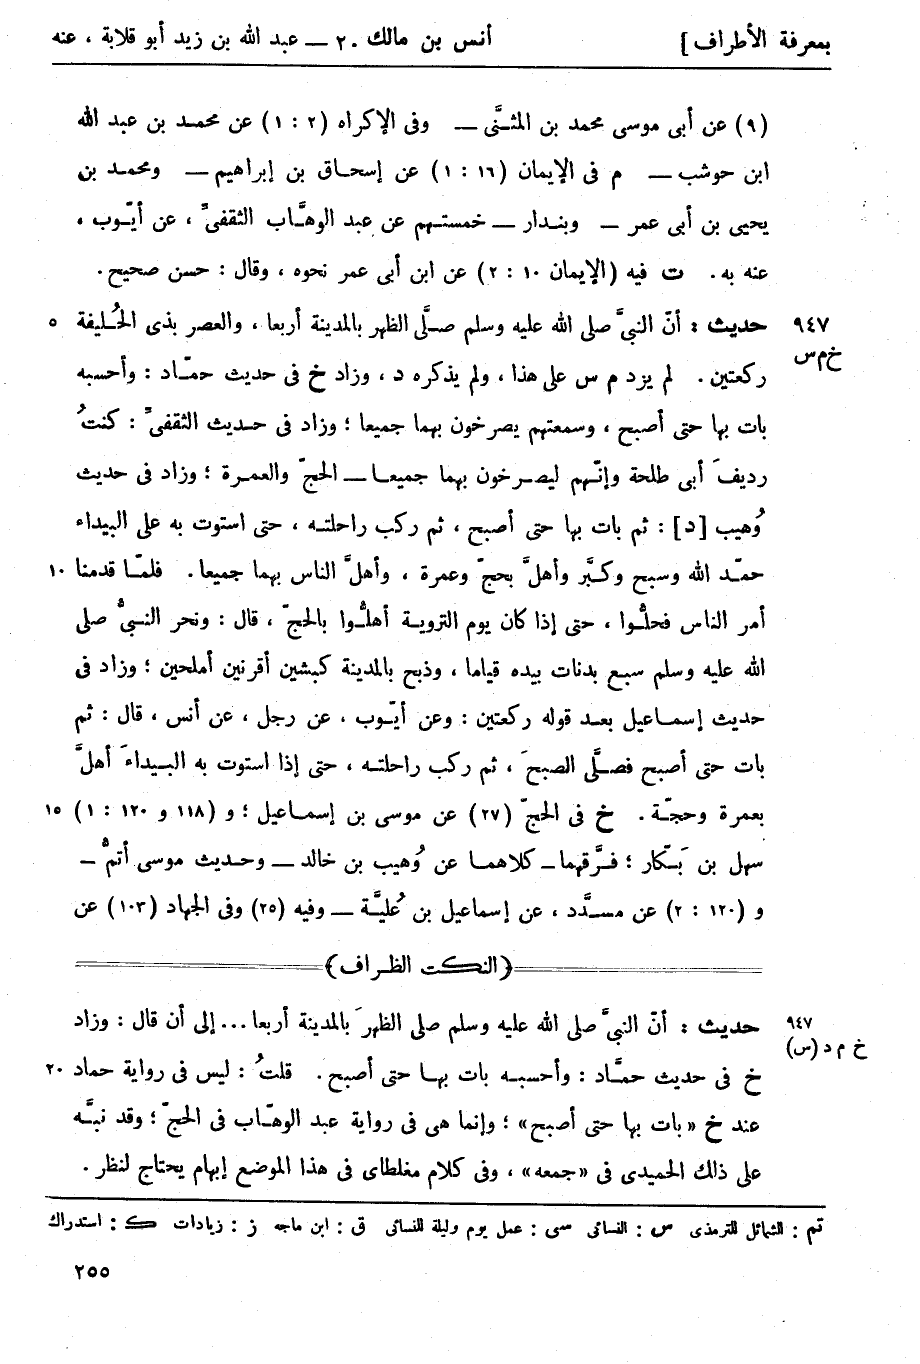 بمعرفة الأطراف] أنس بن مالك ٢٠ — عبد الله بن زيد أبو قلابة ، عنه
(٩) عن أبى موسى محمد بن المثنَّى — وفى الإكراه (٢ : ١) عن محمد بن عبد الله
ابن حوشب — م فى الإيمان (١٦ : ١) عن إسحاق بن إبراهيم — ومحمد بن
يحيى بن أبى عمر — وبندار — خمستهم عن عبد الوهَّاب الثقفىّ ، عن أيّوب ،
عنه به . ت فيه (الإيمان ١٠ : ٢) عن ابن أبى عمر نحوه ، وقال : حسن صحيح .
٩٤٧ حديث : أنّ النبىَّ صلى الله عليه وسلم صلَّى الظهر بالمدينة أربعا ، والعصر بذى الحُليفة ٥
خ م س ركعتين . لم يزد م س على هذا ، ولم يذكره د ، وزاد خ فى حديث حمّاد : وأحسبه
بات بها حتى أصبح ، وسمعتهم يصرخون بهما جميعا ؛ وزاد فى حديث الثقفىّ : كنتُ
رديفَ أبى طلحة وإنّهم ليصرخون بهما جميعا — الحجّ والعمرة ؛ وزاد فى حديث
وُهيب [د] : ثم بات بها حتى أصبح ، ثم ركب راحلته ، حتى استوت به على البيداء
حمّد الله وسبح وكبَّر وأهلَّ بحجّ وعمرة ، وأهلَّ الناس بهما جميعا . فلمّا قدمنا ١٠
أمر الناس فحلُّوا ، حتى إذا كان يوم التروية أهلُّوا بالحجّ ، قال : ونحر النبىُّ صلى
الله عليه وسلم سبع بدنات بيده قياما ، وذبح بالمدينة كبشين أقرنين أملحين ؛ وزاد فى
حديث إسماعيل بعد قوله ركعتين : وعن أيّوب ، عن رجل ، عن أنس ، قال : ثم
بات حتى أصبح فصلَّى الصبحَ ، ثم ركب راحلته ، حتى إذا استوت به البيداءَ أهلَّ
بعمرة وحجّة . خ فى الحجّ (٢٧) عن موسى بن إسماعيل ؛ و (١١٨ و ١٢٠ : ١) ١٥
سهل بن بَكّار ؛ فرَّقهما — كلاهما عن وُهيب بن خالد — وحديث موسى أتمُّ —
و (١٢٠ : ٢) عن مسدَّد ، عن إسماعيل بن عُليَّة — وفيه (٢٥) وفى الجهاد (١٠٣) عن
(النكت الظراف)
٩٤٧ حديث : أنّ النبىَّ صلى الله عليه وسلم صلى الظهرَ بالمدينة أربعا... إلى أن قال : وزاد
خ م د (س) خ فى حديث حمَّاد : وأحسبه بات بها حتى أصبح . قلتُ : ليس فى رواية حماد ٢٠
عند خ «بات بها حتى أصبح» ؛ وإنما هى فى رواية عبد الوهّاب فى الحجّ ؛ وقد نبَّه
على ذلك الحميدى فى «جمعه» ، وفى كلام مغلطاى فى هذا الموضع إبهام يحتاج لنظر .
تم : الشمائل للترمذى س : النسائى سى : عمل يوم وليلة للنسائى ق : ابن ماجه ز : زيادات ك : استدراك
٢٥٥